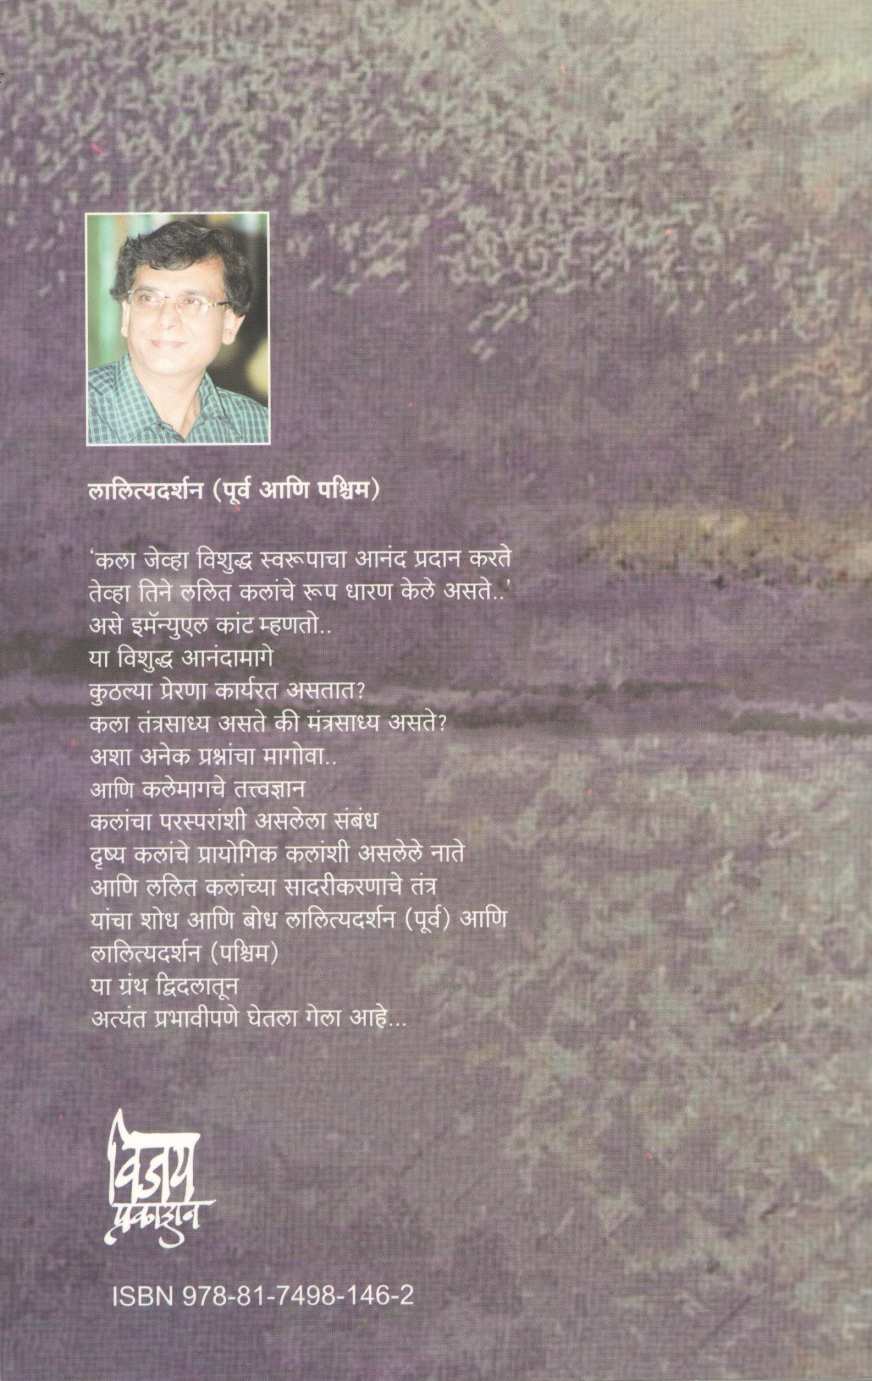 लालित्यदर्शन (पूर्व आणि पश्चिम)
‘कला जेव्हा विशुद्ध स्वरूपाचा आनंद प्रदान करते
तेव्हा तिने ललित कलांचे रूप धारण केले असते..’
असे इमॅन्युएल कांट म्हणतो..
या विशुद्ध आनंदामागे
कुठल्या प्रेरणा कार्यरत असतात?
कला तंत्रसाध्य असते की मंत्रसाध्य असते?
अशा अनेक प्रश्नांचा मागोवा..
आणि कलेमागचे तत्त्वज्ञान
कलांचा परस्परांशी असलेला संबंध
दृष्य कलांचे प्रायोगिक कलांशी असलेले नाते
आणि ललित कलांच्या सादरीकरणाचे तंत्र
यांचा शोध आणि बोध लालित्यदर्शन (पूर्व) आणि
लालित्यदर्शन (पश्चिम)
या ग्रंथ द्विदलातून
अत्यंत प्रभावीपणे घेतला गेला आहे...
विजय
प्रकाशन
ISBN 978-81-7498-146-2